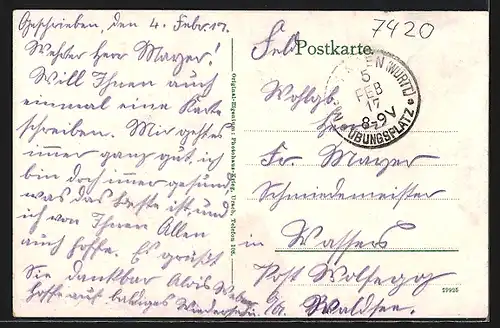 Geschrieben, den 4. Febr. 17.
Wehrter Herr Mayer!
Will Ihnen auch
einmal eine Karte
schreiben. Mir geht es
immer ganz gut, ich
bin doch immer gesund
was das beste ist, und
ich von Ihnen Allen
auch hoffe. Es grüßt
Sie dankbar Alois Weber
hoffe auf baldiges Wiedersehn.
Original-Eigentum: Photohaus Krieg, Urach, Telefon 108.
7420
Feld Postkarte.
(WÜRTT.)
5
FEB
17
8-9V
ÜBUNGSPLATZ
Wohlgb.
Herrn
Fr Mayer
Schmiedemeister
in Wassers
Post Wolfegg
O/A. Waldsee.
29925